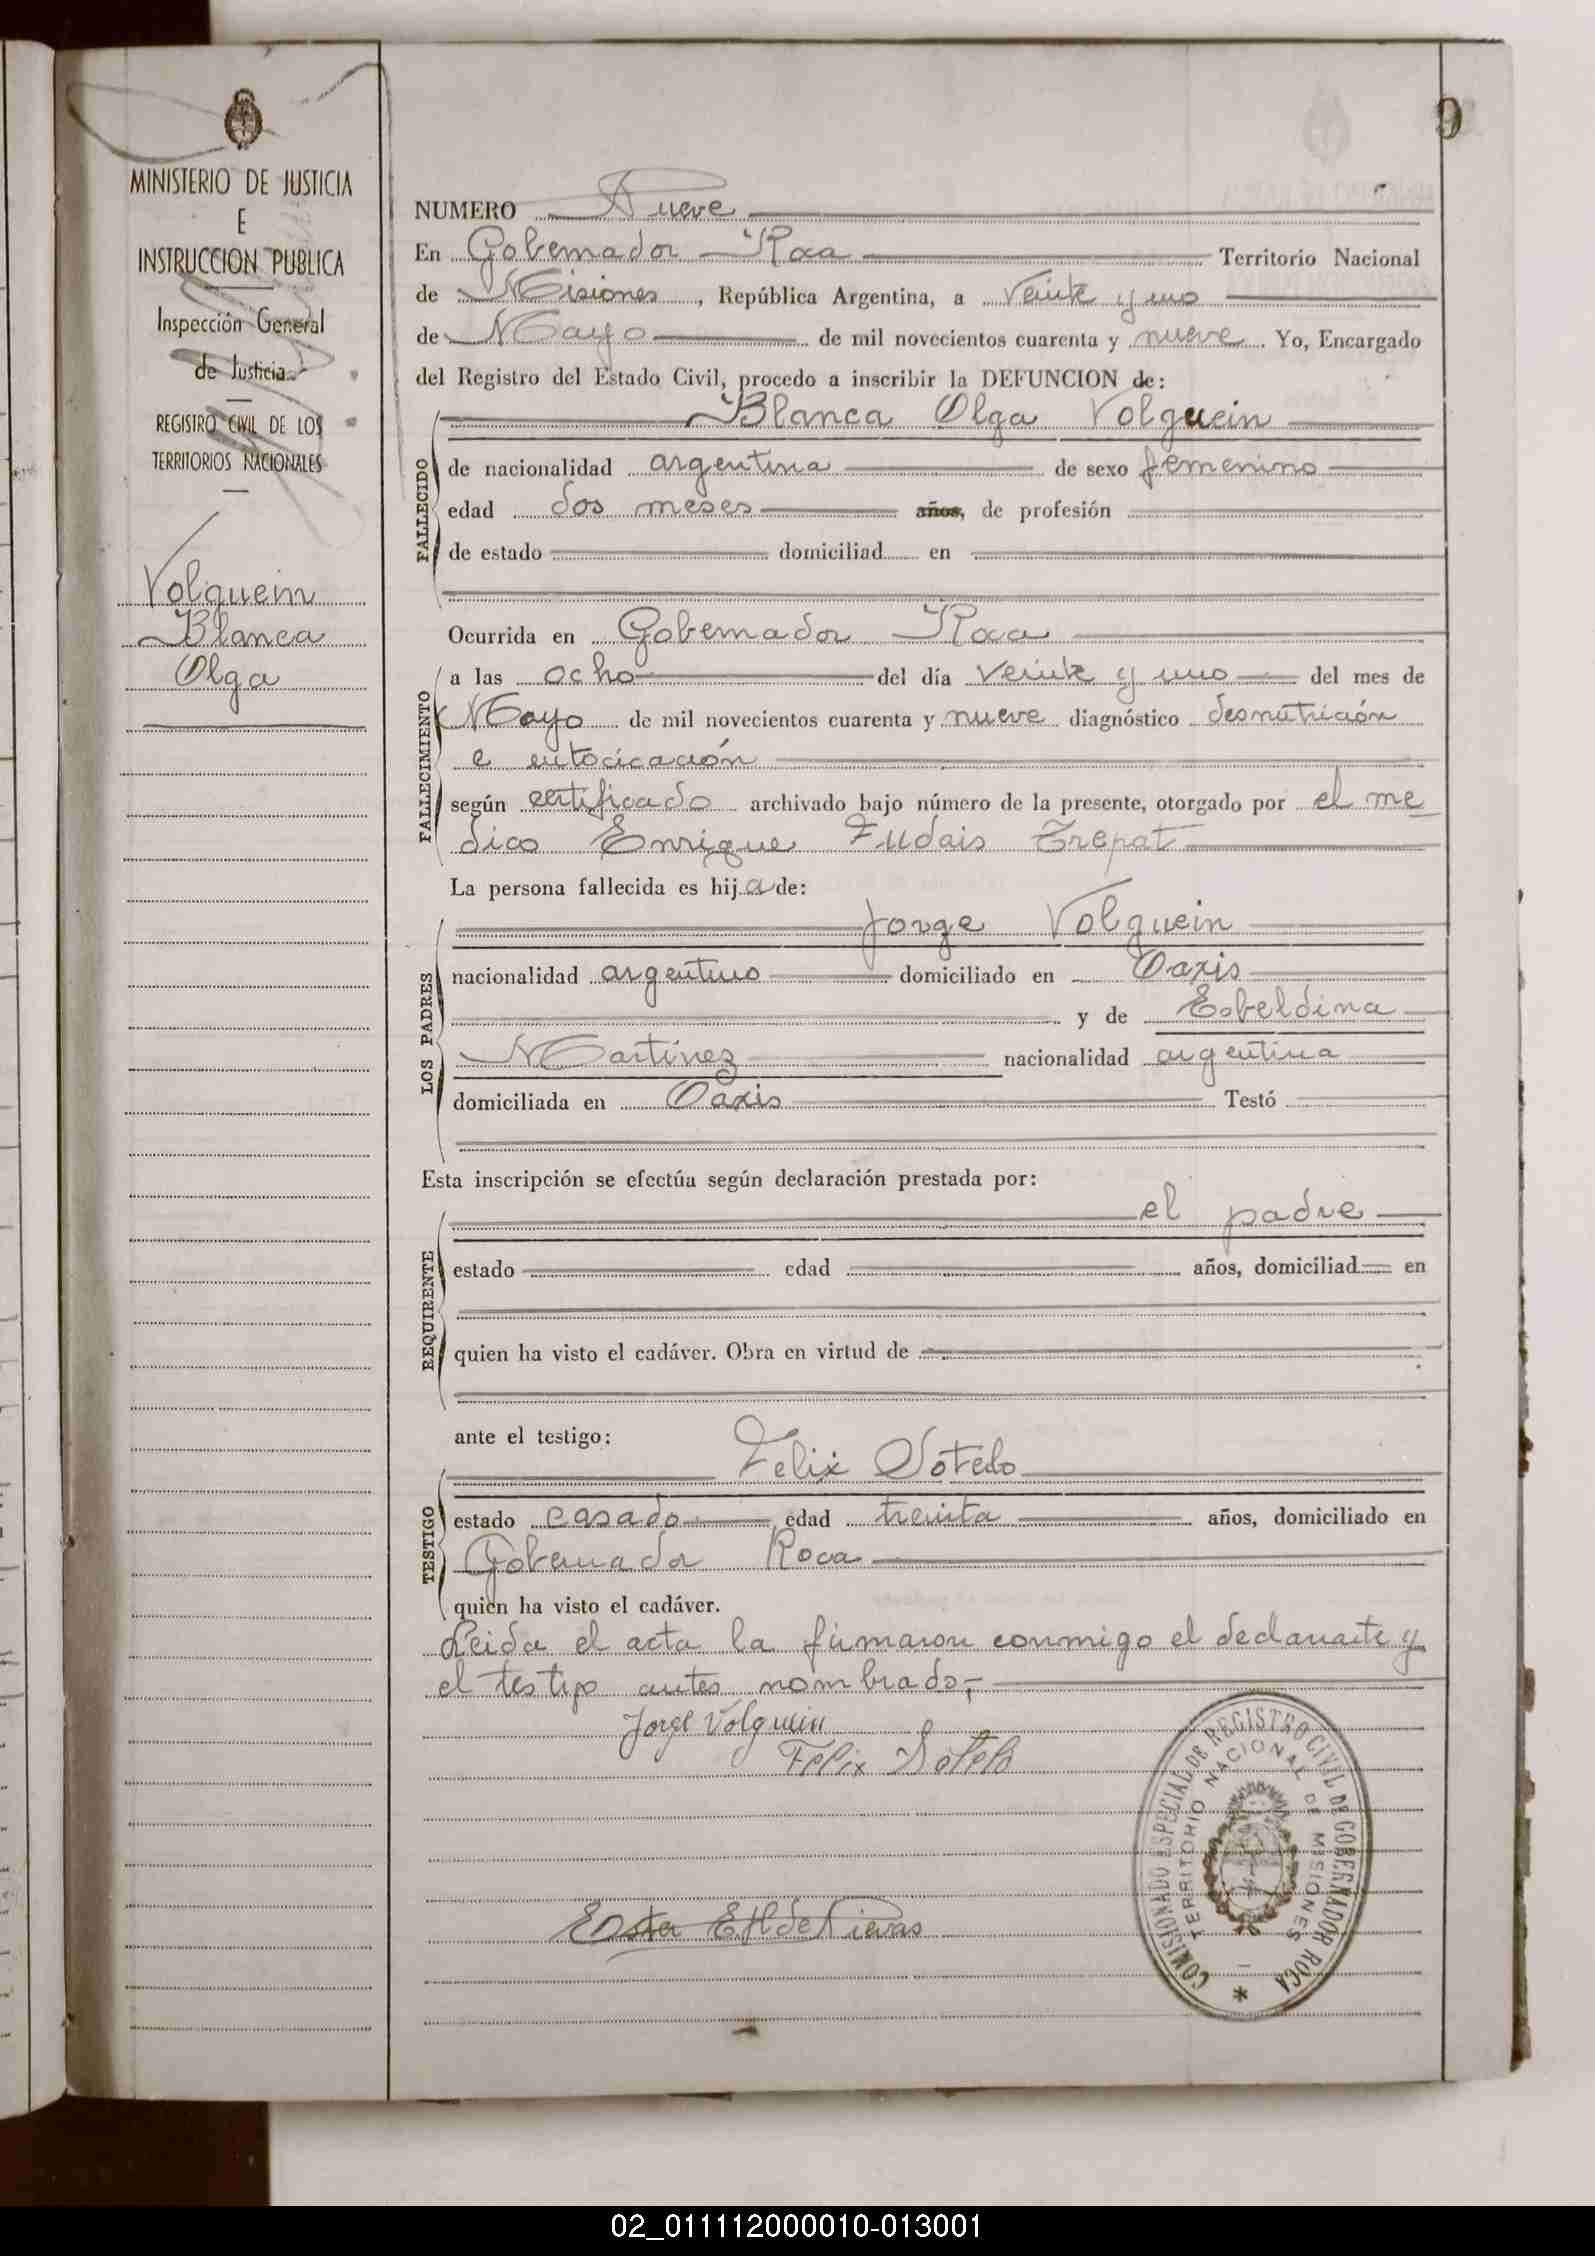 9
MINISTERIO DE JUSTICIA
E
INSTRUCCION PUBLICA
Inspección General
de Justicia
REGISTRO CIVIL DE LOS
TERRITORIOS NACIONALES
Volguein
Blanca
Olga
NUMERO Nueve
En Gobernador Roca Territorio Nacional
de Misiones, República Argentina, a veinte y uno
de Mayo de mil novecientos cuarenta y nueve. Yo, Encargado
del Registro del Estado Civil, procedo a inscribir la DEFUNCION de:
Blanca Olga Volguein
FALLECIDO
de nacionalidad argentina de sexo femenino
edad dos meses años, de profesión
de estado domiciliad en
Ocurrida en Gobernador Roca
FALLECIMIENTO
a las ocho del día veinte y uno del mes de
Mayo de mil novecientos cuarenta y nueve diagnóstico desnutrición
e entocicación
según certificado archivado bajo número de la presente, otorgado por el me
dico Enrique Fudais Trepat
La persona fallecida es hija de:
LOS PADRES
Jorge Volguein
nacionalidad argentino domiciliado en Oaxis
y de Esbeldina
Martinez nacionalidad argentina
domiciliada en Oaxis Testó
Esta inscripción se efectúa según declaración prestada por:
REQUIRENTE
el padre
estado edad años, domiciliad en
quien ha visto el cadáver. Obra en virtud de
ante el testigo:
TESTIGO
Felix Sotelo
estado casado edad treinta años, domiciliado en
Gobernador Roca
quien ha visto el cadáver.
Leida el acta la firmaron conmigo el declarante y
el testigo antes nombrado,-
Jorge Volguein
Felix Sotelo
Ester E. H. de Nievas
COMISIONADO ESPECIAL DE REGISTRO CIVIL DE GOBERNADOR ROCA
TERRITORIO NACIONAL DE MISIONES
02_011112000010-013001